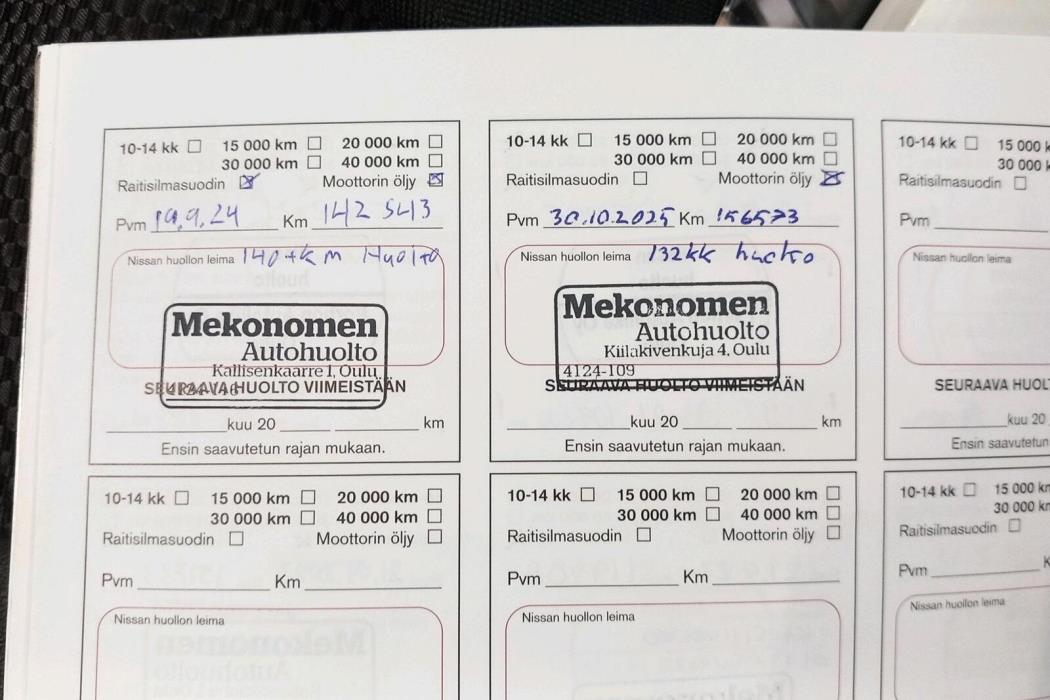 10-14 kk 15 000 km 20 000 km
30 000 km 40 000 km
Raitisilmasuodin Moottorin öljy
Pvm 19.9.24 Km 142 543
Nissan huollon leima 140 tkm Huolto
Mekonomen
Autohuolto
Kallisenkaarre 1, Oulu
SEURAAVA HUOLTO VIIMEISTÄÄN
kuu 20 km
Ensin saavutetun rajan mukaan.
10-14 kk 15 000 km 20 000 km
30 000 km 40 000 km
Raitisilmasuodin Moottorin öljy
Pvm 30.10.2025 Km 156573
Nissan huollon leima 132kk huolto
Mekonomen
Autohuolto
Kiilakivenkuja 4, Oulu
4124-109
SEURAAVA HUOLTO VIIMEISTÄÄN
kuu 20 km
Ensin saavutetun rajan mukaan.
10-14 kk 15 000
30 000
Raitisilmasuodin
Pvm
Nissan huollon leima
SEURAAVA
kuu 20
Ensin saavutetun
10-14 kk 15 000 km 20 000 km
30 000 km 40 000 km
Raitisilmasuodin Moottorin öljy
Pvm Km
Nissan huollon leima
10-14 kk 15 000 km 20 000 km
30 000 km 40 000 km
Raitisilmasuodin Moottorin öljy
Pvm Km
Nissan huollon leima
10-14 kk 15 000
30 000
Raitisilmasuodin
Pvm
Nissan huollon leima